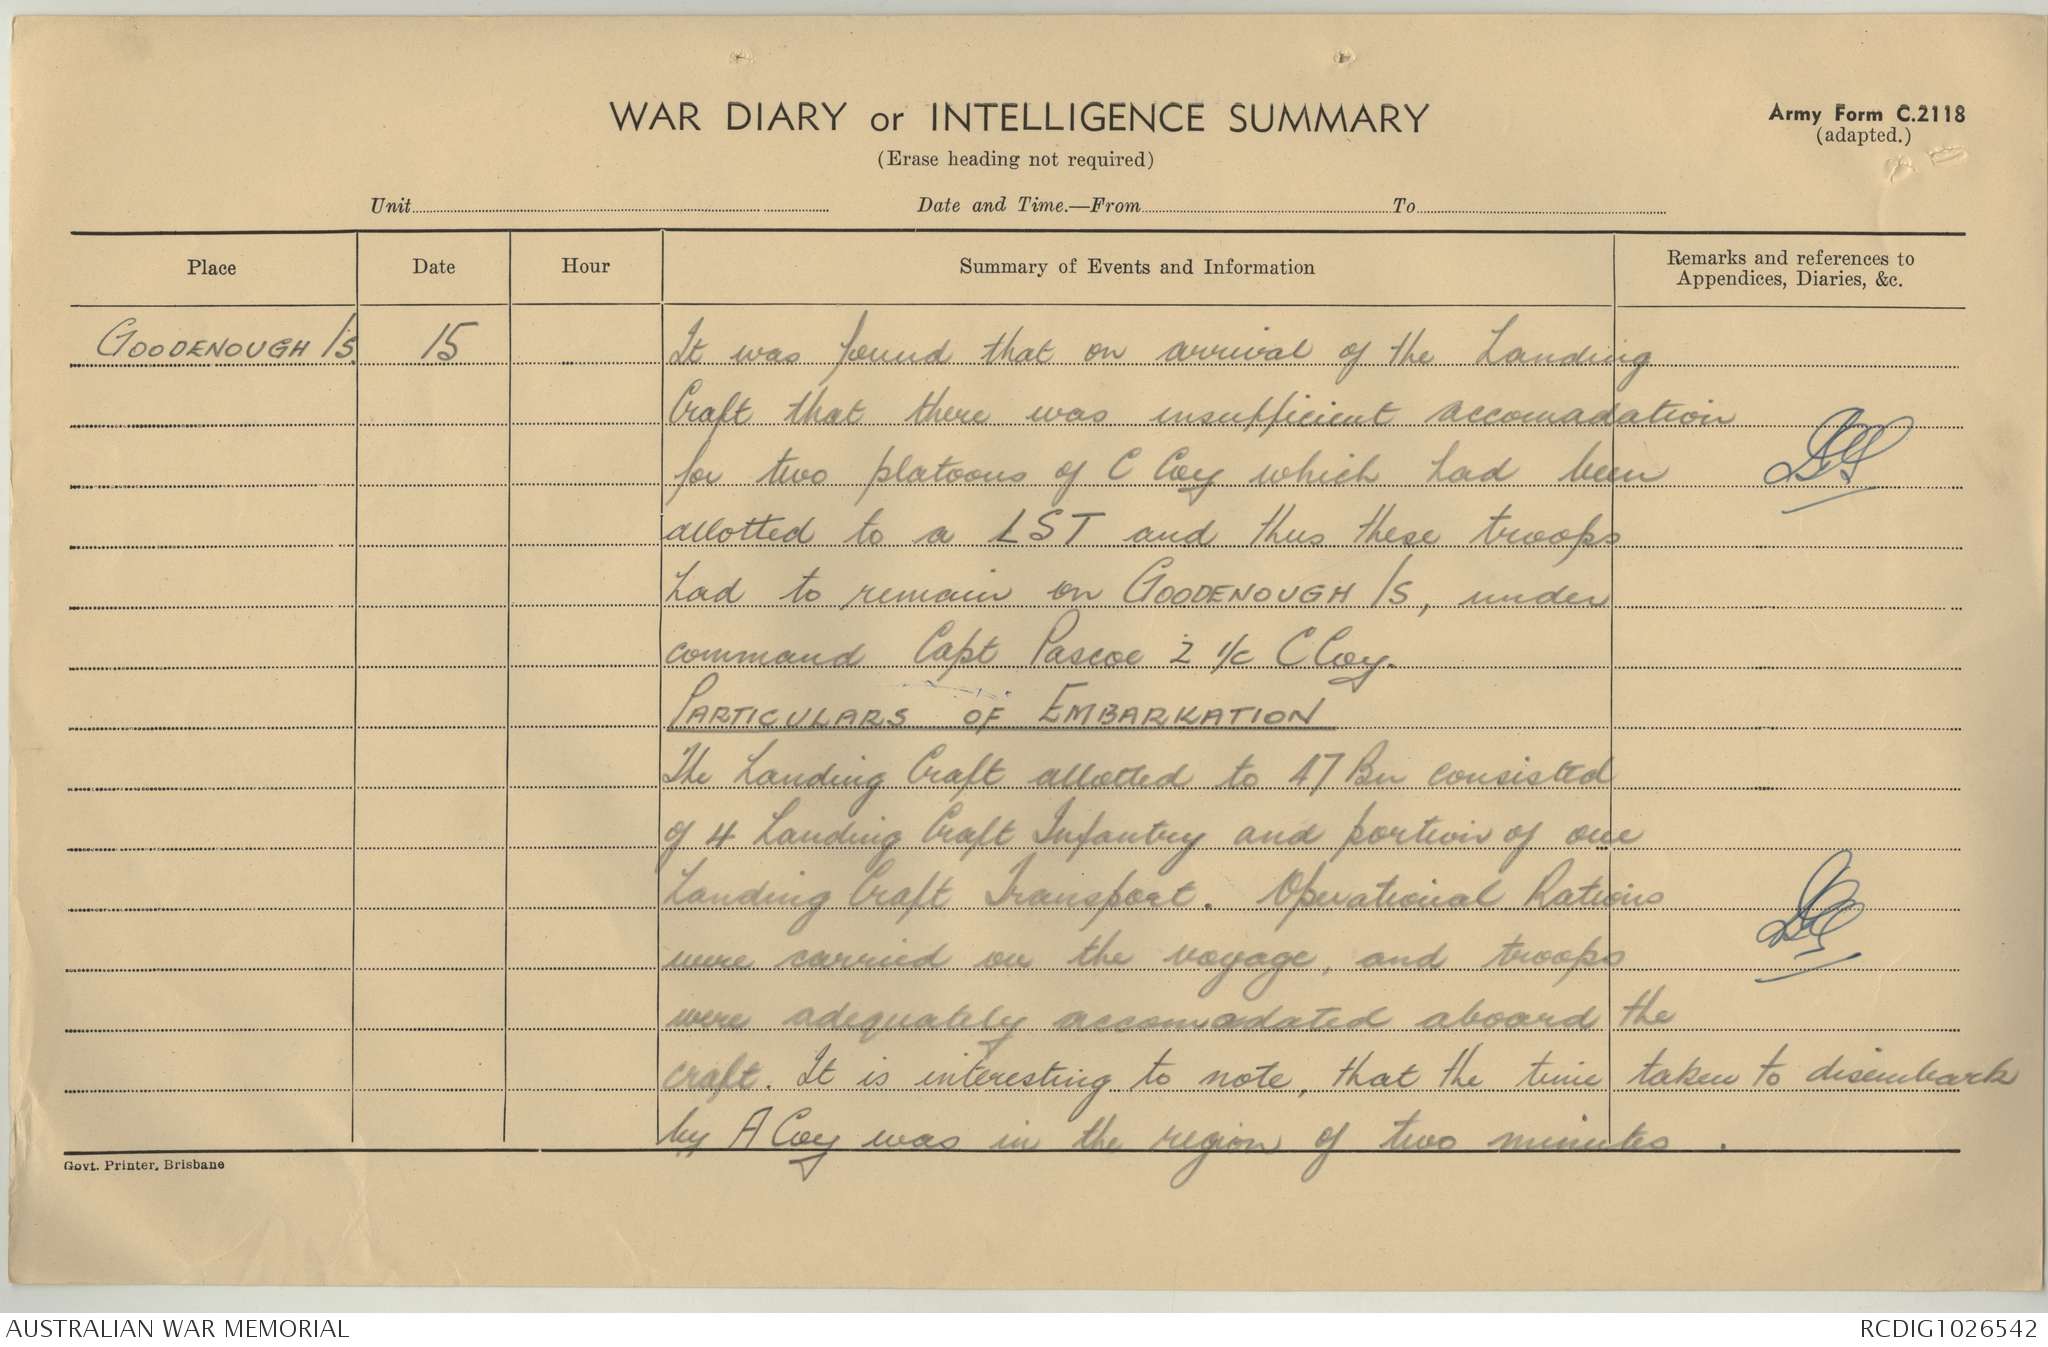 WAR DIARY or INTELLIGENCE SUMMARY
Army Form C.2118
(adapted.)
(Erase heading not required)
Unit
Date and Time.—From
To
Place
Date
Hour
Summary of Events and Information
Remarks and references to
Appendices, Diaries, &c.
GOODENOUGH IS. 15 It was found that on arrival of the Landing
Craft that there was insufficient accomadation
for two platoons of C Coy which had been
allotted to a LST and thus these troops
had to remain on GOODENOUGH IS, under
command Capt Pascoe 2 i/c C Coy.
PARTICULARS OF EMBARKATION
The Landing Craft allotted to 47 Bn consisted
of 4 Landing Craft Infantry and portion of one
Landing Craft Transport. Operational Rations
were carried on the voyage, and troops
were adequately accomadated aboard the
craft. It is interesting to note, that the time taken to disembark
by A Coy was in the region of two minutes.
Govt. Printer, Brisbane
AUSTRALIAN WAR MEMORIAL
RCDIG1026542